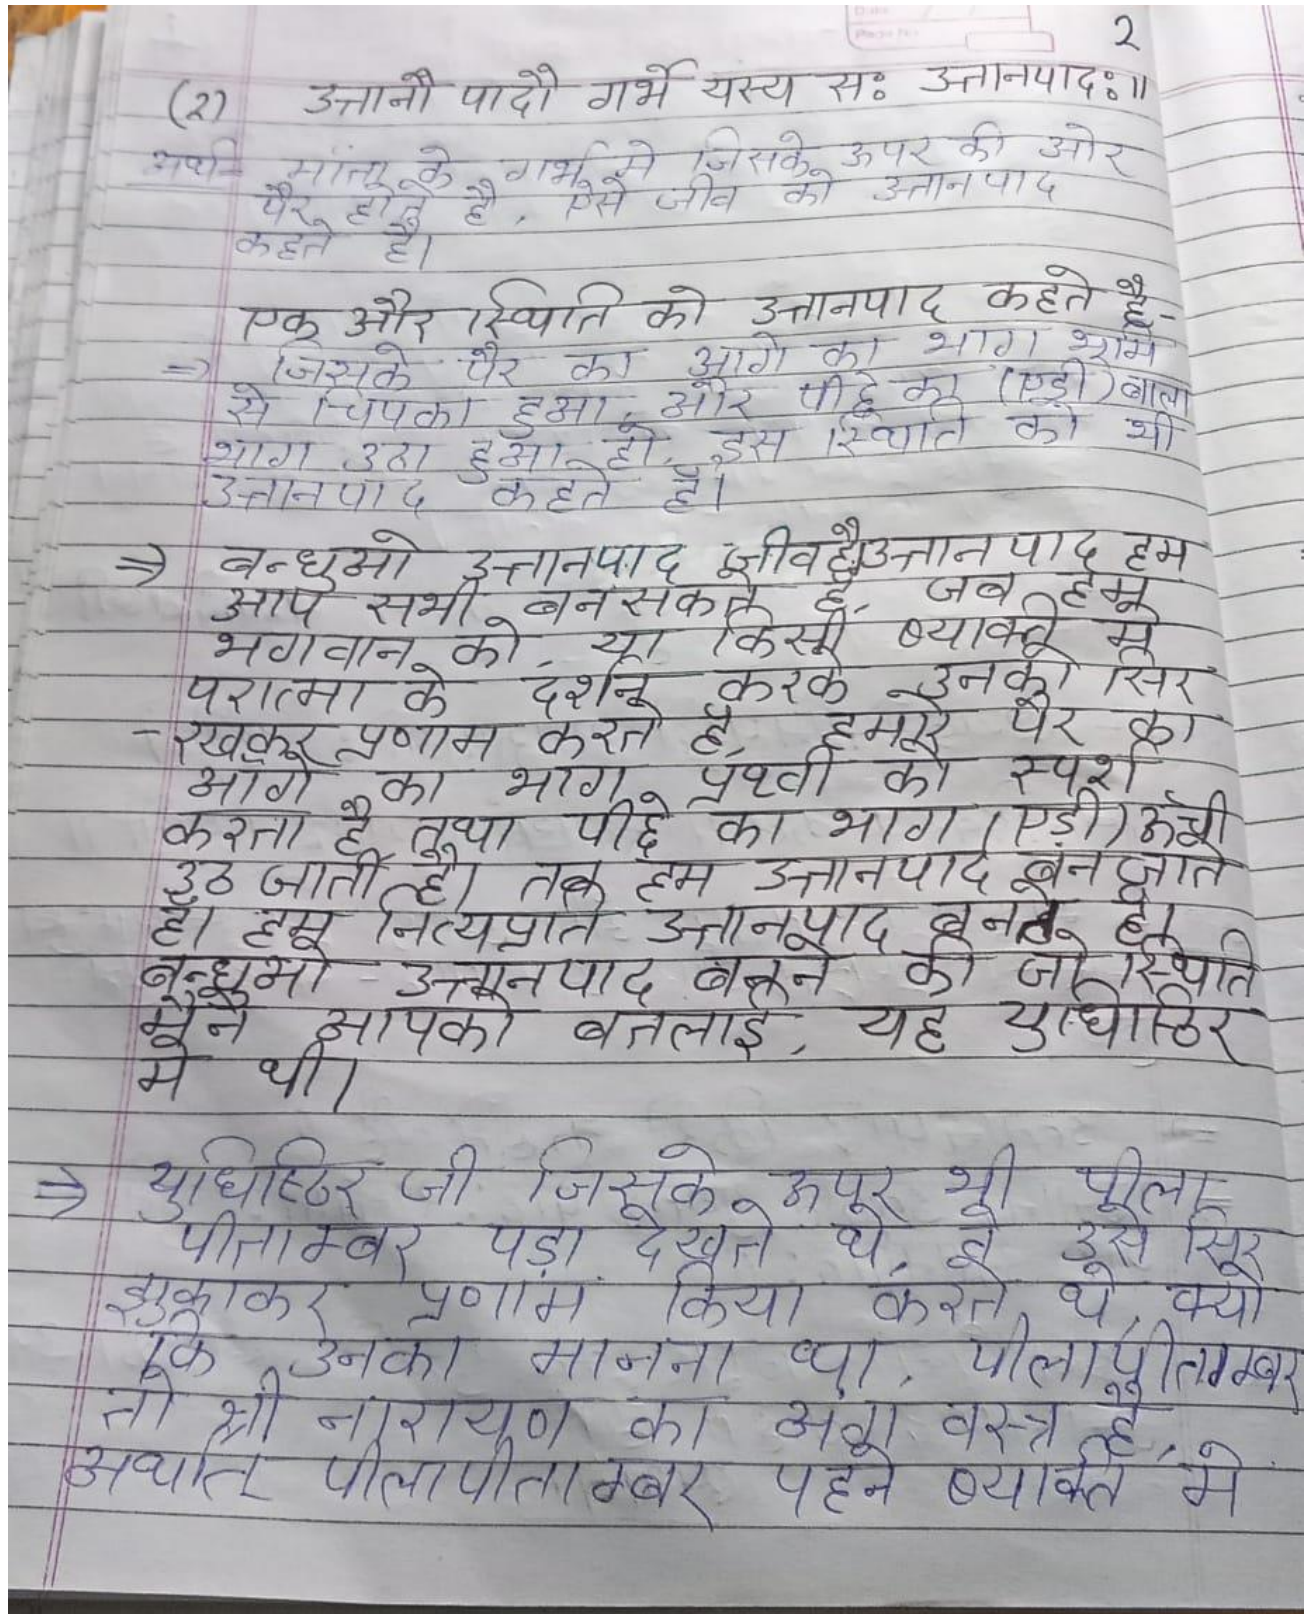 २
(२) उत्तानौ पादौ गर्भे यस्य सः उत्तानपादः॥
अर्थ- माता के गर्भ मे जिसके ऊपर की ओर
पैर होते है, ऐसे जीव को उत्तानपाद
कहते है।
एक और स्थिति को उत्तानपाद कहते है-
⇒ जिसके पैर का आगे का भाग भूमि
से चिपका हुआ, और पीछे का (एड़ी) वाला
भाग उठा हुआ हो, इस स्थिति को भी
उत्तानपाद कहते है।
⇒ बन्धुओ उत्तानपाद जीव है। उत्तान पाद हम
आप सभी बन सकते है, जब हम
भगवान को, या किसी व्यक्ति मे
परात्मा के दर्शन करके उनको सिर
-रखकर प्रणाम करते है, हमारे पैर का
आगे का भाग प्रथ्वी को स्पर्श
करता है तथा पीछे का भाग (एड़ी) ऊँची
उठ जाती है। तब हम उत्तानपाद बन जाते
है। हम नित्यप्रति उत्तानपाद बनते है।
बन्धुओ उत्तानपाद बनने की जो स्थिति
मैने आपको बतलाई, यह युधिष्ठिर
मे थी।
⇒ युधिष्ठिर जी जिसके ऊपर भी पीला
पीताम्बर पड़ा देखते थे, वे उसे सिर
झुकाकर प्रणाम किया करते थे, क्यो
कि उनका मानना था, पीलापीताम्बर
तो श्री नारायण का अंग वस्त्र है,
अर्थात पीलापीताम्बर पहने व्यक्ति मे